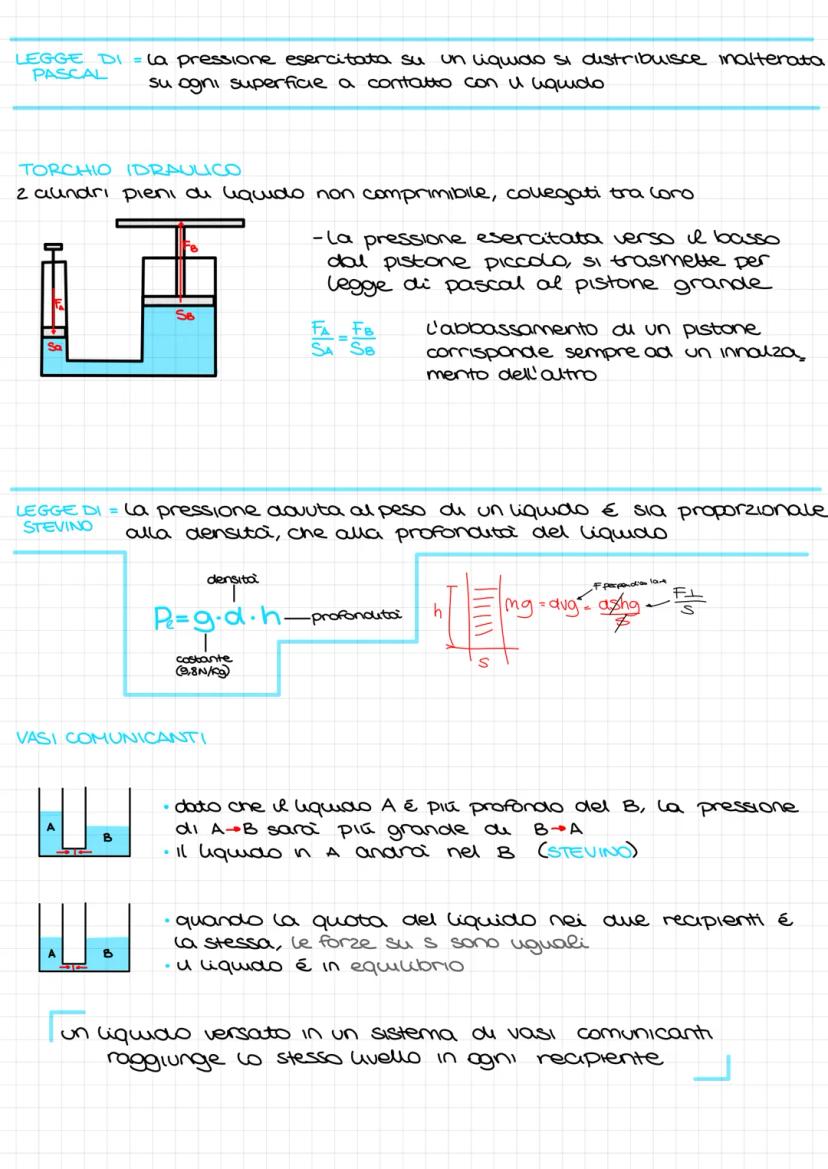 LEGGE DI = La pressione esercitata su un liquido si distribuisce inalterata
PASCAL su ogni superficie a contatto con il liquido
TORCHIO IDRAULICO
2 cilindri pieni di liquido non comprimibile, collegati tra loro
FA
Sa
FB
SB
-La pressione esercitata verso il basso
dal pistone piccolo, si trasmette per
legge di pascal al pistone grande
FA/SA = FB/SB
L'abbassamento di un pistone
corrisponde sempre ad un innalza_
mento dell'altro
LEGGE DI = La pressione dovuta al peso di un liquido é sia proporzionale
STEVINO alla densità, che alla profondità del liquido
densità
Pₑ=g·d·h—profondità
costante
(9,8N/Kg)
h
S
F perpendicolare
mg = dvg = dshg/s
F⊥/S
VASI COMUNICANTI
A
B
• dato che il liquido A é più profondo del B, la pressione
di A→B sarà più grande di B→A
• Il liquido in A andrà nel B (STEVINO)
A
B
• quando la quota del liquido nei due recipienti é
la stessa, le forze su s sono uguali
• il liquido é in equilibrio
un liquido versato in un sistema di vasi comunicanti
raggiunge lo stesso livello in ogni recipiente